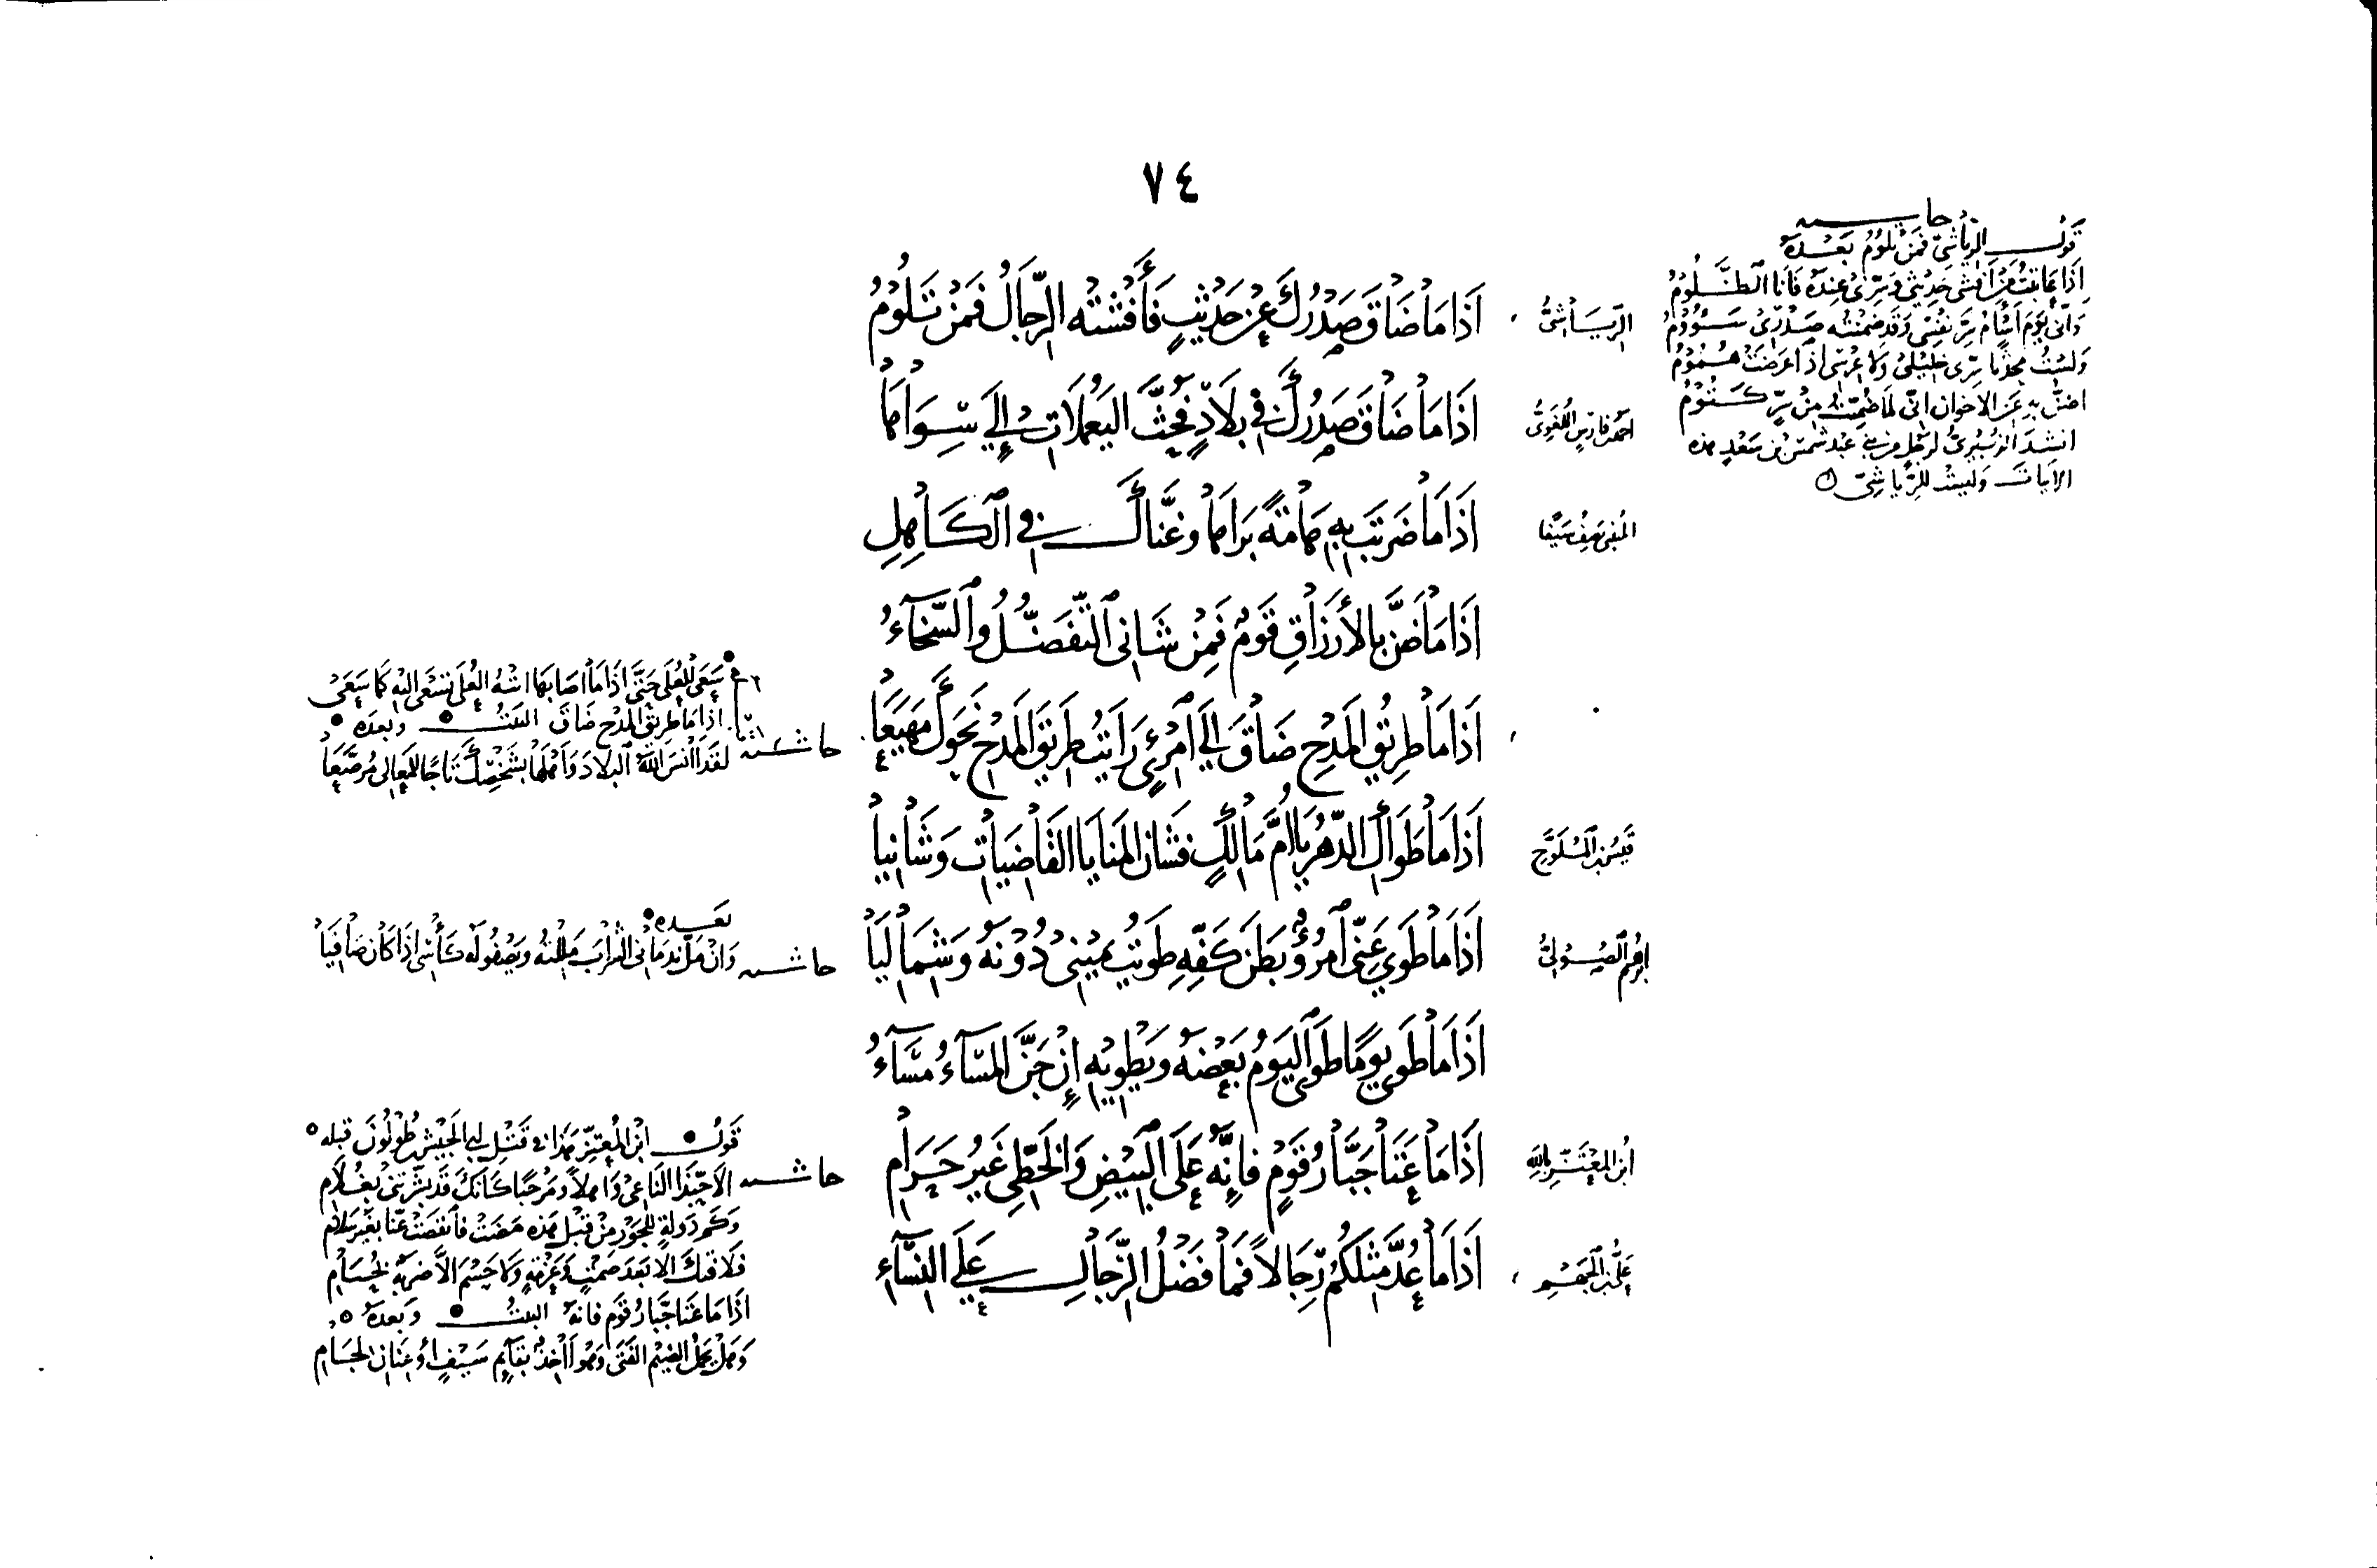 ٧٤
حاشية
قول الرياشي فمن تلوم بعده
اذا عاتبت من افشى حديثي وسري عنده فانا الظلوم
واني يوم اسأم سر نفسي وقد ضمنته صدري سؤوم
ولست محدثا سري خليلي ولا عرسي اذا عرضت هموم
اضن به عن الاخوان اني لما ضمنت من سر كتوم
انشد الزبيري لرجل من بني عبد شمس بن سعد هذه
الابيات وليست للرياشي
الرياشي
اِذَا مَا ضَاقَ صَدْرُكَ عَنْ حَدِيْثٍ فَأَفْشَتْهُ الرِّجَالُ فَمَنْ تَلُوْمُ
احمد بن فارس اللغوي
اِذَا مَا ضَاقَ صَدْرُكَ فِي بِلَادٍ فَحُثَّ اليَعْمَلَاتِ إِلَى سِوَاهَا
المتنبي يصف سيفا
اِذَا مَا ضَرَبْتَ بِهِ هَامَةً بَرَاهَا وَغَنَّاكَ فِي الكَاهِلِ
اِذَا مَا ضَنَّ بِالأَرْزَاقِ قَوْمٌ فَمِنْ شَانِي التَّفَضُّلُ وَالسَّخَاءُ
اِذَا مَا طَرِيْقُ المَدْحِ ضَاقَ إِلَى امْرِئٍ رَأَيْتُ طَرِيْقَ المَدْحِ نَحْوَكَ مَهْيَعًا
حاشية
سعى للعلى حتى اذا ما اصابها انثنت العلى تسعى اليه كما سعى
اذا ما طريق المدح ضاق البيت وبعده
لقد آنس الله البلاد واهلها بشخصك تاجا للمعالي مرصعا
قيس بن الملوح
اِذَا مَا طَوَاكِ الدَّهْرُ يَا أُمَّ مَالِكٍ فَشَانُ المَنَايَا القَاضِيَاتِ وَشَانِيَا
ابرهيم الصولي
اِذَا مَا طَوَى عَنِّي امْرُؤٌ بَطْنَ كَفِّهِ طَوَيْتُ يَمِيْنِي دُوْنَهُ وَشِمَالِيَا
حاشية
بعده
وان مل ندماني الشراب مللته ويصفو له كأسي اذا كان صافيا
اِذَا مَا طَوَى يَوْمًا طَوَى اليَوْمُ بَعْضَهُ وَيَطْوِيْهِ إِنْ جَنَّ المَسَاءُ مَسَاءُ
ابن المعتز بالله
اِذَا مَا عَتَا جَبَّارُ قَوْمٍ فَإِنَّهُ عَلَى البِيْضِ وَالخَطِّيِّ غَيْرُ حَرَامِ
حاشية
قول ابن المعتز هذا في قتل ابي الجيش بن طولون قبله
الا حبذا الناعي واهلا ومرحبا كانك قد بشرتني بغلام
وكم دولة للجور من قبل هذه مضت فانقضت عنا بغير سلام
فلا فتك الا بعد صمت وعزمة ولا حسم الا ضربة بحسام
اذا ما عتا جبار قوم فانه البيت وبعده
وهل يحمل الضيم الفتى وهو آخذ بقائم سيف او عنان لجام
علي بن الجهم
اِذَا مَا عُدَّ مِثْلُكُمُ رِجَالاً فَمَا فَضْلُ الرِّجَالِ عَلَى النِّسَاءِ